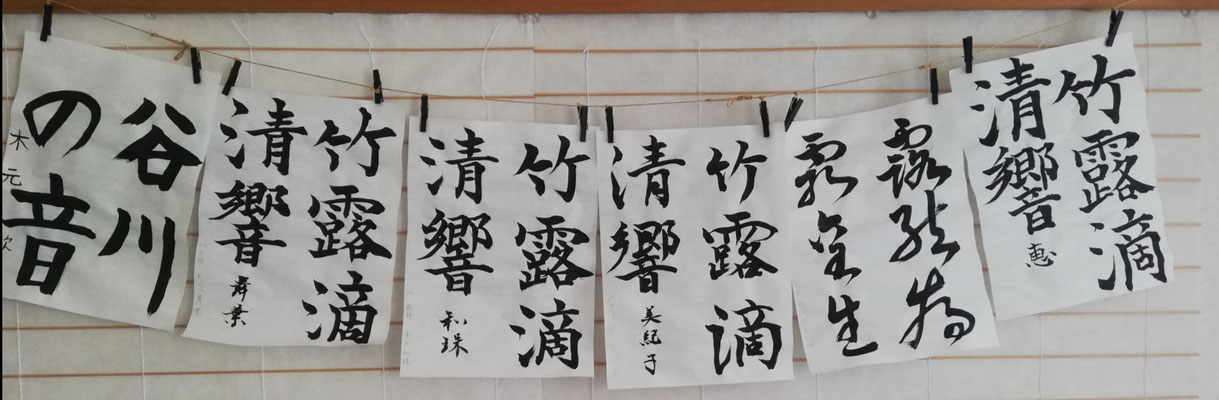 竹露滴
清響
恵
竹露滴
清響
美紀子
竹露滴
清響
和珠
竹露滴
清響
舞葉
谷川
の音
木元次